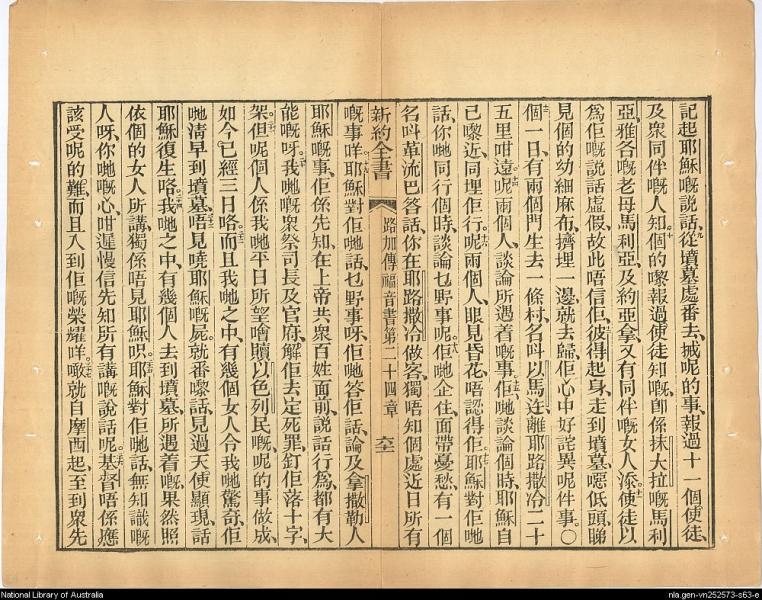 記起耶穌嘅說話、從墳墓處番去、城呢的事、報過十一個使徒、
及衆同伴嘅人知、個的嚟報過使徒知嘅、卽係抹大拉嘅馬利
亞、雅各嘅老母馬利亞、及約亞拿、又有同伴嘅女人添、使徒以
爲佢嘅說話虛假、故此唔信佢、彼得起身、走到墳墓、噁低頭、睇
見個的幼細麻布、擠埋一邊、就去歸、佢心中好詫異呢件事。○
個一日、有兩個門生去一條村、名叫以馬迕、離耶路撒冷二十
五里咁遠、呢兩個人、談論所遇着嘅事、佢哋談論個時、耶穌自
己嚟近、同埋佢行、呢兩個人、眼見昏花、唔認得佢、耶穌對佢哋
話、你哋同行個時、談論乜野事呢、佢哋企住、面帶憂愁、有一個
名叫革流巴答話、你在耶路撒冷做客、獨唔知個處近日所有
新約全書 路加傳福音書第二十四章 六三
嘅事咩、耶穌對佢哋話、乜野事呀、佢哋答佢話、論及拿撒勒人
耶穌嘅事、佢係先知、在上帝共衆百姓面前、說話行爲、都有大
能嘅呀、我哋嘅衆祭司長及官府、解佢去定死罪、釘佢落十字
架、但呢個人係我哋平日所望噲贖以色列民嘅、呢的事做成、
如今已經三日咯、而且我哋之中、有幾個女人令我哋驚奇、佢
哋淸早到墳墓、唔見曉耶穌嘅屍、就番嚟話、見過天使顯現、話
耶穌復生咯、我哋之中、有幾個人去到墳墓、所遇着嘅、果然照
依個的女人所講、獨係唔見耶穌呮、耶穌對佢哋話、無知識嘅
人呀、你哋嘅心、咁遲慢信先知所有講嘅說話呢、基督唔係應
該受呢的難、而且入到佢嘅榮耀咩、噉就自摩西起、至到衆先
National Library of Australia
nla.gen-vn252573-s63-e